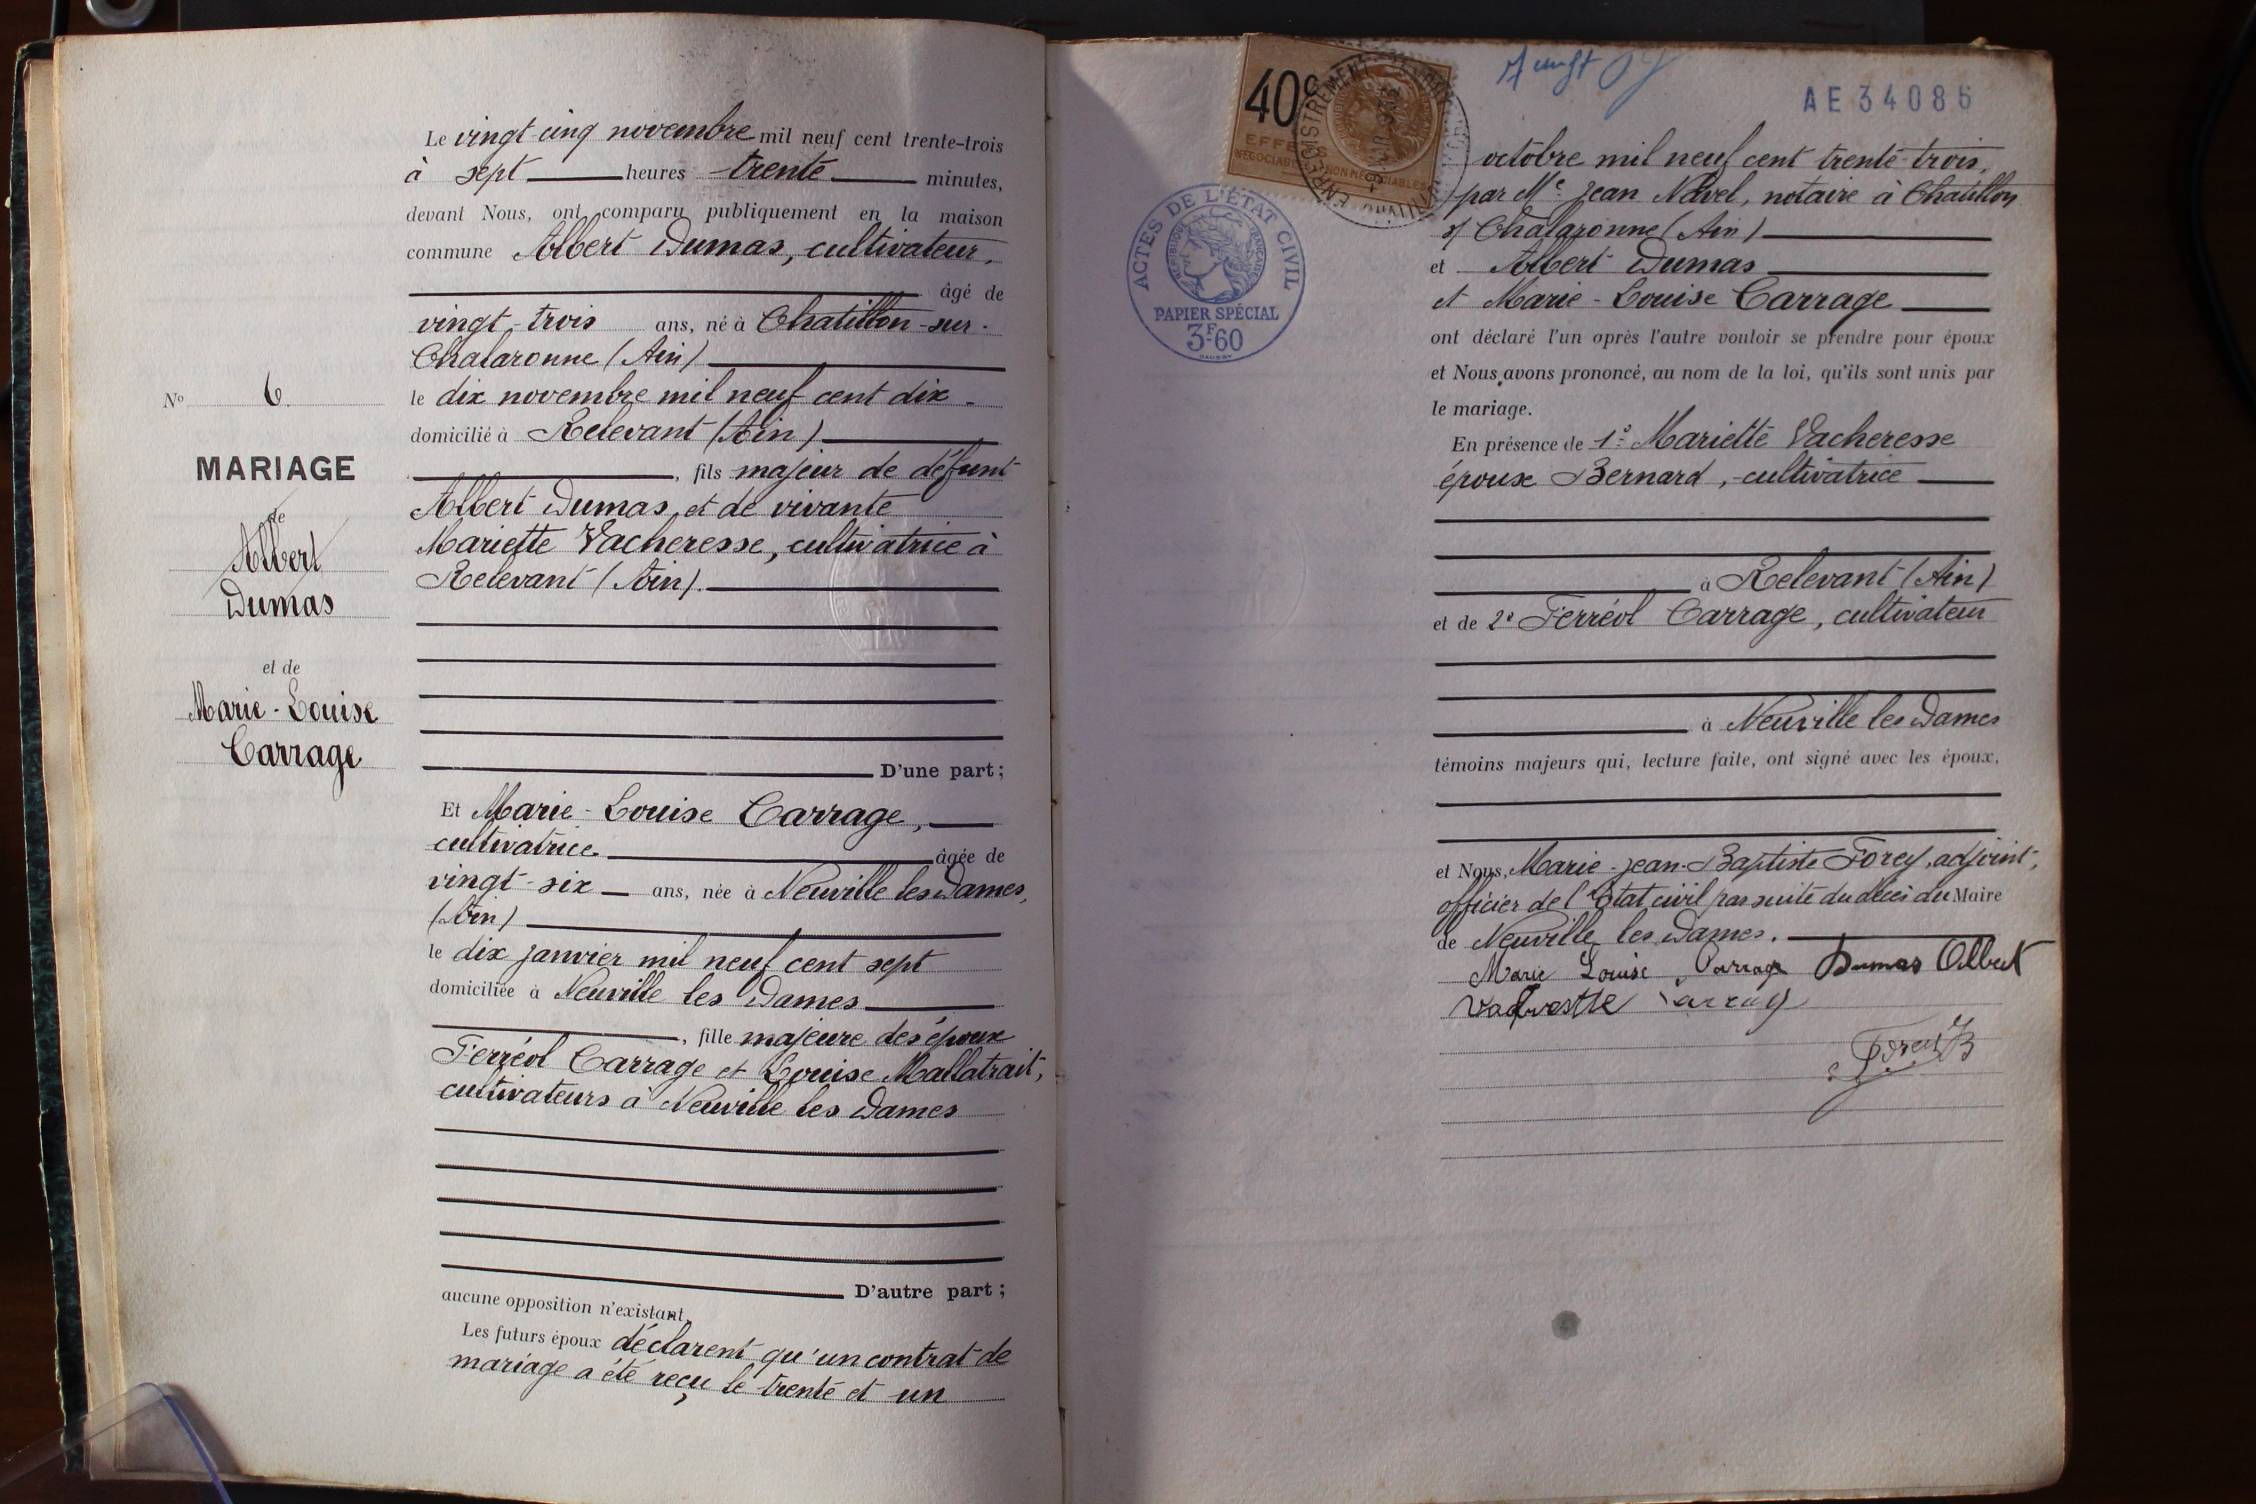 Le vingt-cinq novembre mil neuf cent trente-trois
à sept heures trente minutes,
devant Nous, ont comparu publiquement en la maison
commune Albert Dumas, cultivateur,
âgé de
vingt-trois ans, né à Chatillon-sur-
Chalaronne (Ain)
le dix novembre mil neuf cent dix
domicilié à Relevant (Ain)
, fils majeur de défunt
Albert Dumas et de vivante
Mariette Vacheresse, cultivatrice à
Relevant (Ain).
D'une part ;
Et Marie-Louise Carrage,
cultivatrice âgée de
vingt-six ans, née à Neuville les Dames,
(Ain)
le dix janvier mil neuf cent sept
domiciliée à Neuville les Dames
, fille majeure des époux
Ferréol Carrage et Louise Mallatrait,
cultivateurs à Neuville les Dames
D'autre part ;
aucune opposition n'existant.
Les futurs époux déclarent qu'un contrat de
mariage a été reçu le trente et un
No 6.
MARIAGE
de
Albert
Dumas
et de
Marie-Louise
Carrage
40c
EFFETS
NÉGOCIABLES NON NÉGOCIABLES
ENREGISTREMENT
vingt
AE 34086
ACTES DE L'ÉTAT CIVIL
RÉPUBLIQUE FRANÇAISE
PAPIER SPÉCIAL
3F.60
octobre mil neuf cent trente-trois,
par Me Jean Navel, notaire à Chatillon
s/ Chalaronne (Ain)
et Albert Dumas
et Marie-Louise Carrage
ont déclaré l'un après l'autre vouloir se prendre pour époux
et Nous avons prononcé, au nom de la loi, qu'ils sont unis par
le mariage.
En présence de 1o Mariette Vacheresse
épouse Bernard, cultivatrice
à Relevant (Ain)
et de 2o Ferréol Carrage, cultivateur
à Neuville les Dames
témoins majeurs qui, lecture faite, ont signé avec les époux,
et Nous, Marie-Jean-Baptiste Forey, adjoint,
officier de l'Etat civil par suite du décès du Maire
de Neuville les Dames.
Marie Louise Carrage Dumas Albert
Carrage
Forey JB